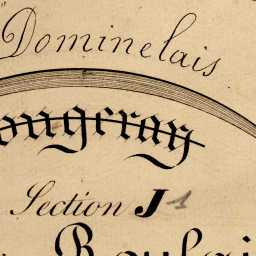 Dominelais
ougeray
Section J 1